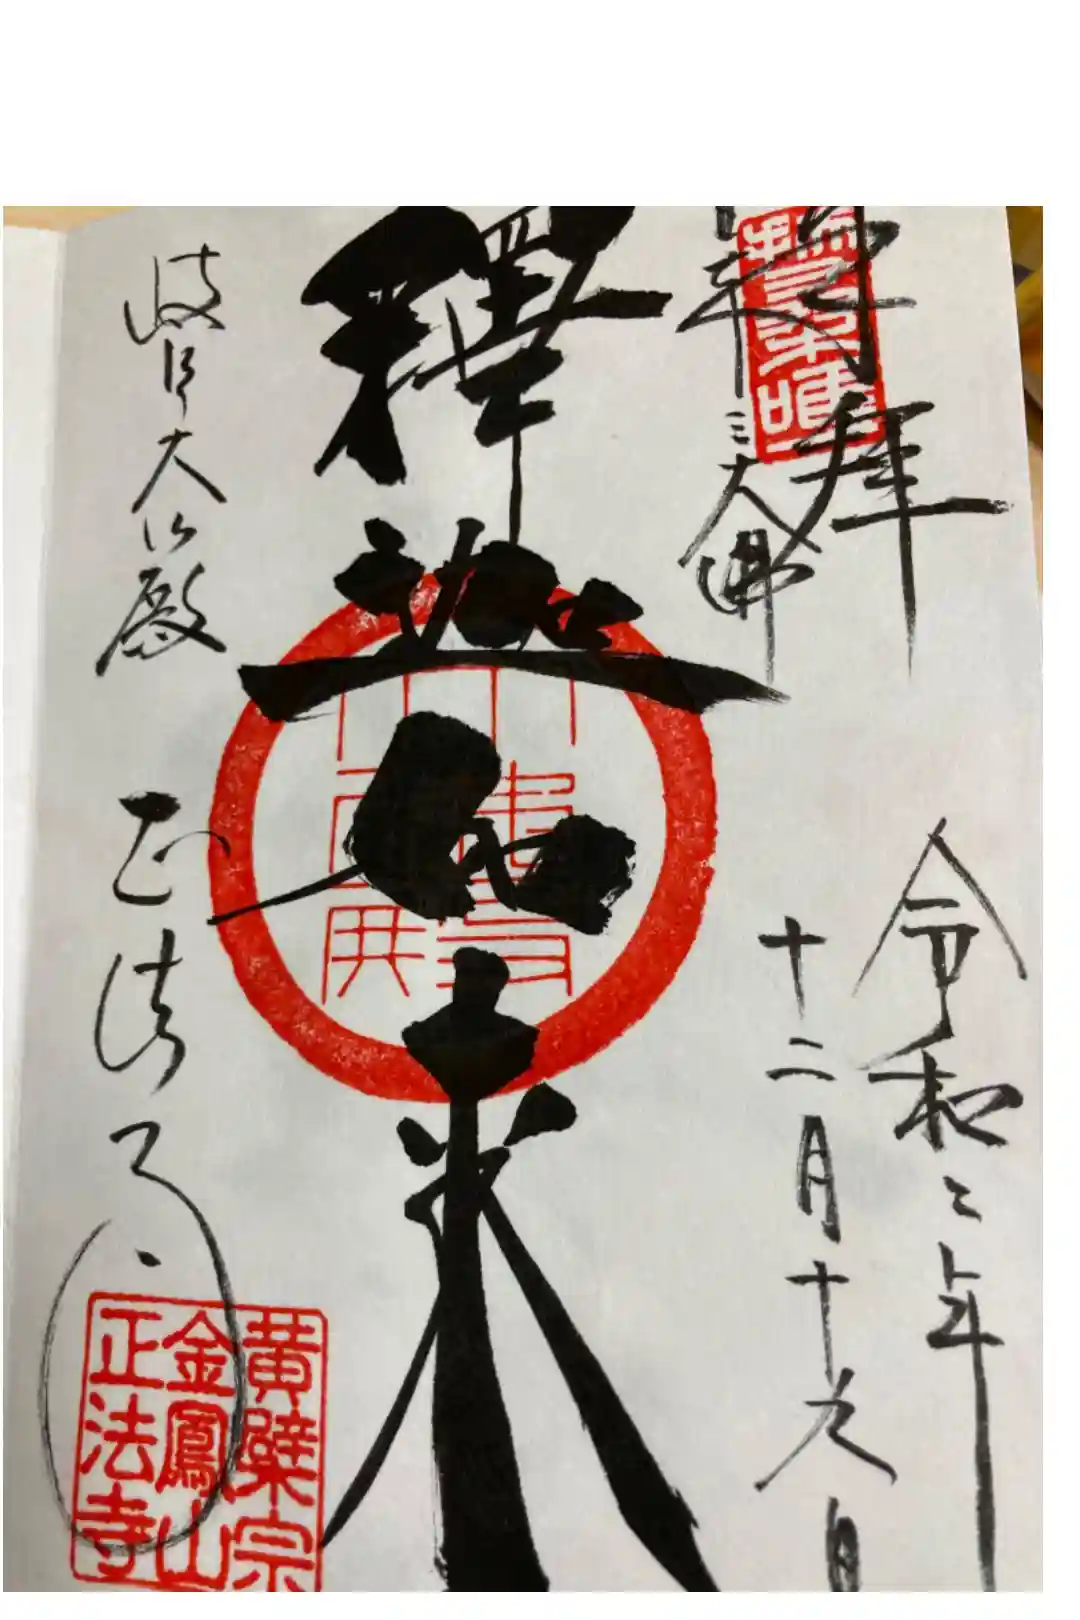 奉拝
日本三大佛
令和三年
十二月十九日
釋迦如来
岐阜大仏殿
正法寺
黄檗宗
金鳳山
正法寺